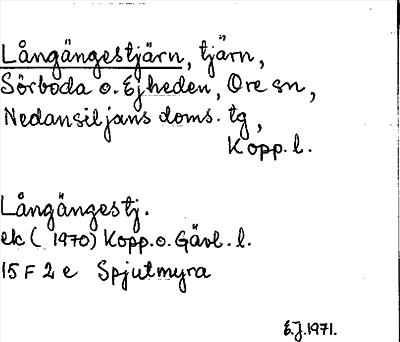 Långängestjärn, tjärn,
Sörboda o. Ejheden, Ore sn,
Nedansiljans doms. tg,
Kopp. l.
Långängestj.
ek ( 1970) Kopp. o. Gävl. l.
15 F 2 e Spjutmyra
E.J. 1971.